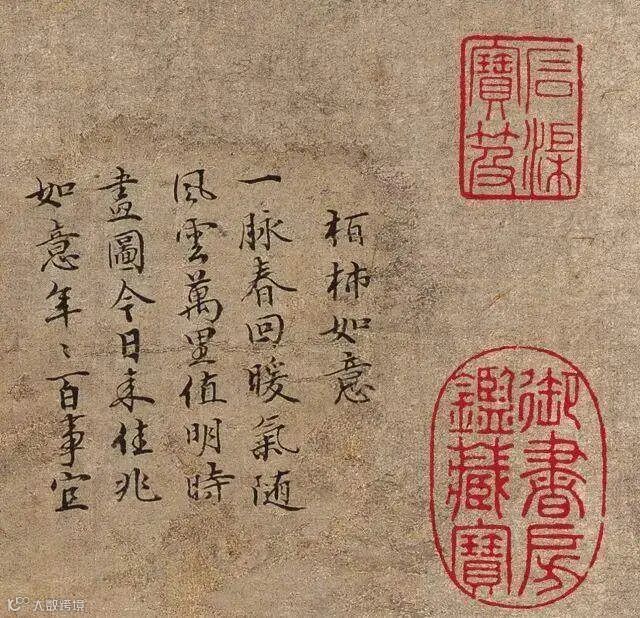 石渠
寶笈
御書房
鑑藏寶
栢柿如意
一脉春回暖氣随
風雲萬里值明時
畫圖今日来佳兆
如意年〻百事宜
大数跨境